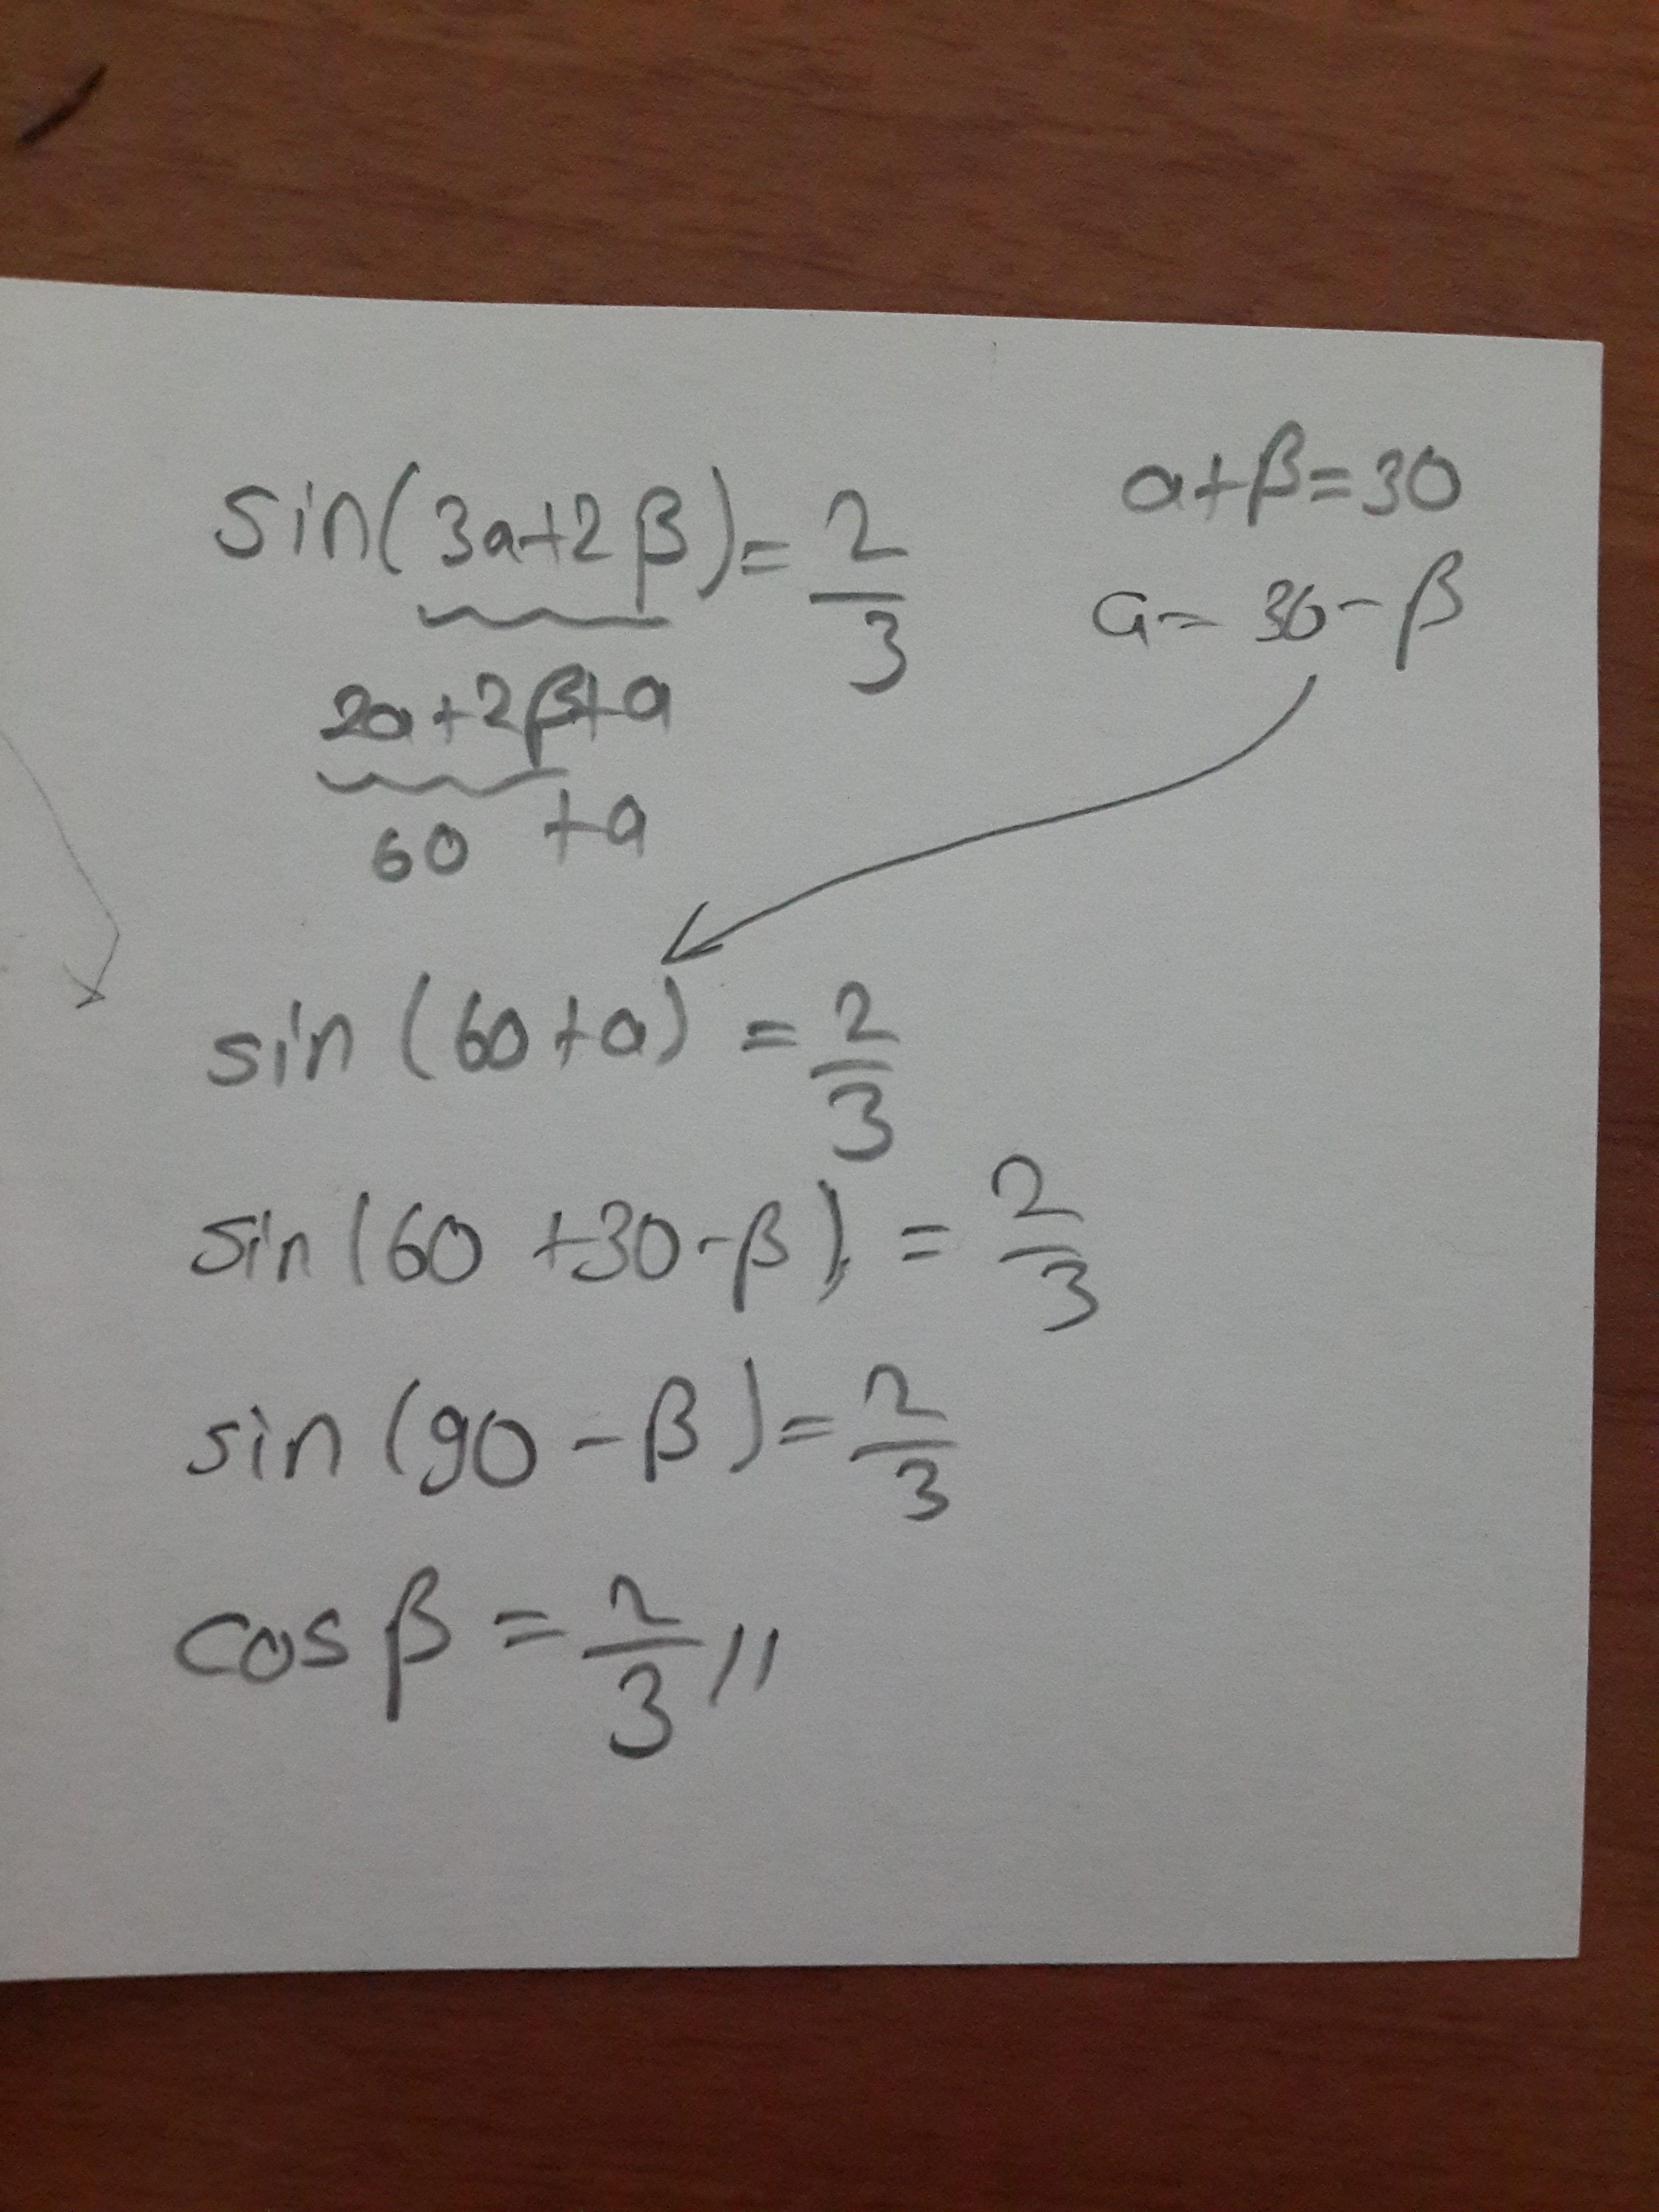 sin(3a+2β)=2/3
a+β=30
a=30-β
2a+2β+a
60 +a
sin(60+a)=2/3
sin(60+30-β)=2/3
sin(90-β)=2/3
cosβ=2/3//